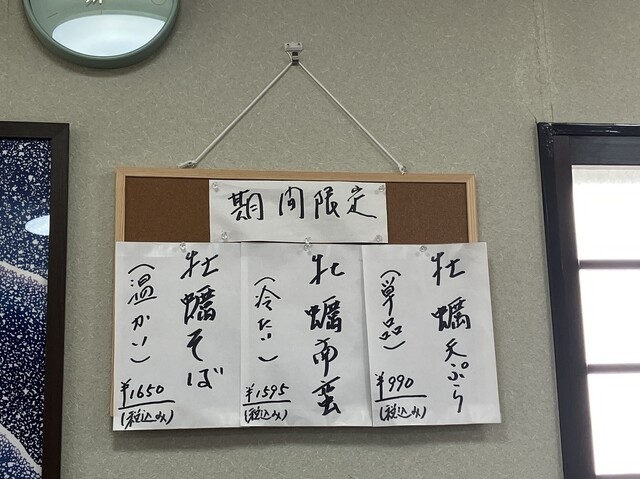 期間限定
牡蠣天ぷら
(単品)
¥990
(税込み)
牡蠣南蛮
(冷たい)
¥1595
(税込み)
牡蠣そば
(温かい)
¥1650
(税込み)